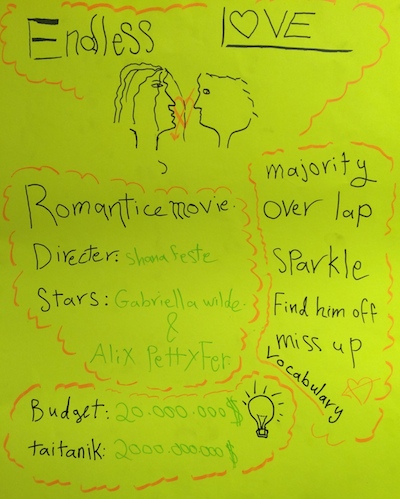 Endless LOVE
Romantice movie.
Directer: shana feste
Stars: Gabriella wilde.
&
Alix PettyFer
Budget: 20.000.000$
taitanik: 2000.000.000$
majority
over lap
sparkle
Find him off
miss up
Vocabulary